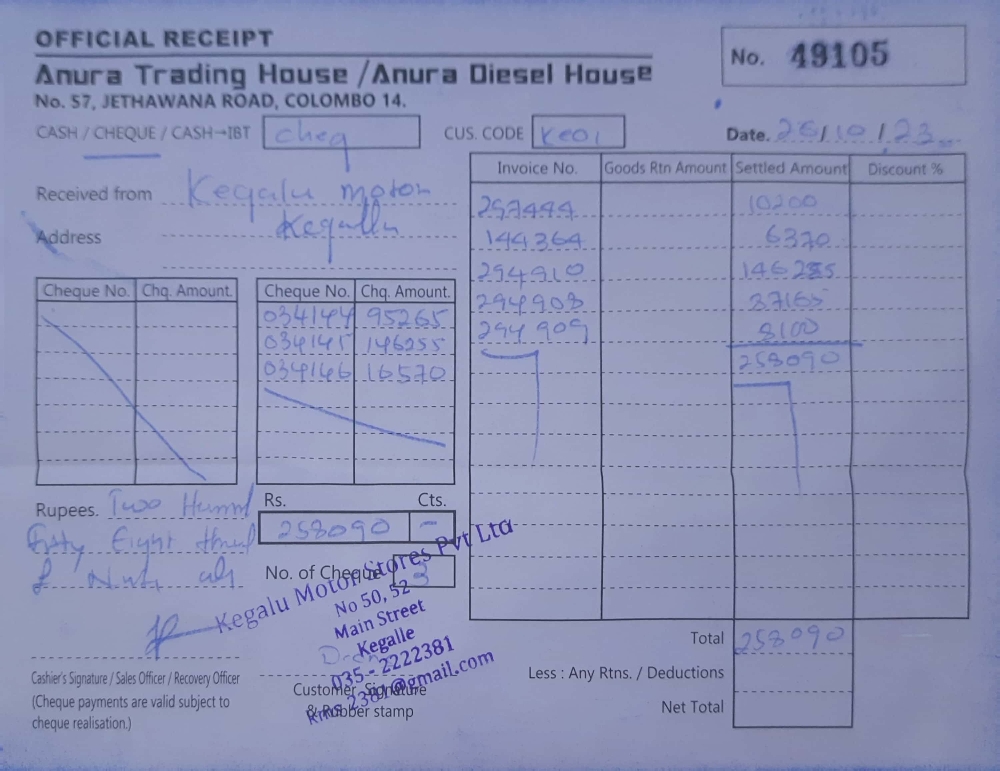 OFFICIAL RECEIPT
No. 49105
Anura Trading House / Anura Diesel House
No. 57, JETHAWANA ROAD, COLOMBO 14.
CASH / CHEQUE / CASH→IBT cheq CUS. CODE KE01 Date. 26/10/23
Received from Kegalu motor
Address Kegalla
Invoice No. Goods Rtn Amount Settled Amount Discount %
297444 10200
144364 6370
294910 146255
294908 87165
294909 8100
258090
Cheque No. Chq. Amount. Cheque No. Chq. Amount.
034144 95265
034145 146255
034146 16570
Rupees. Two Hund
Fifty Eight thou
& Ninty only
Rs. Cts.
258090 -
No. of Cheque 3
Kegalu Motor Stores Pvt Ltd
No 50, 52
Main Street
Kegalle
035 - 2222381
kms2381@gmail.com
Cashier's Signature / Sales Officer / Recovery Officer
(Cheque payments are valid subject to
cheque realisation.)
Customer Signature
& Rubber stamp
Total 258090
Less : Any Rtns. / Deductions
Net Total